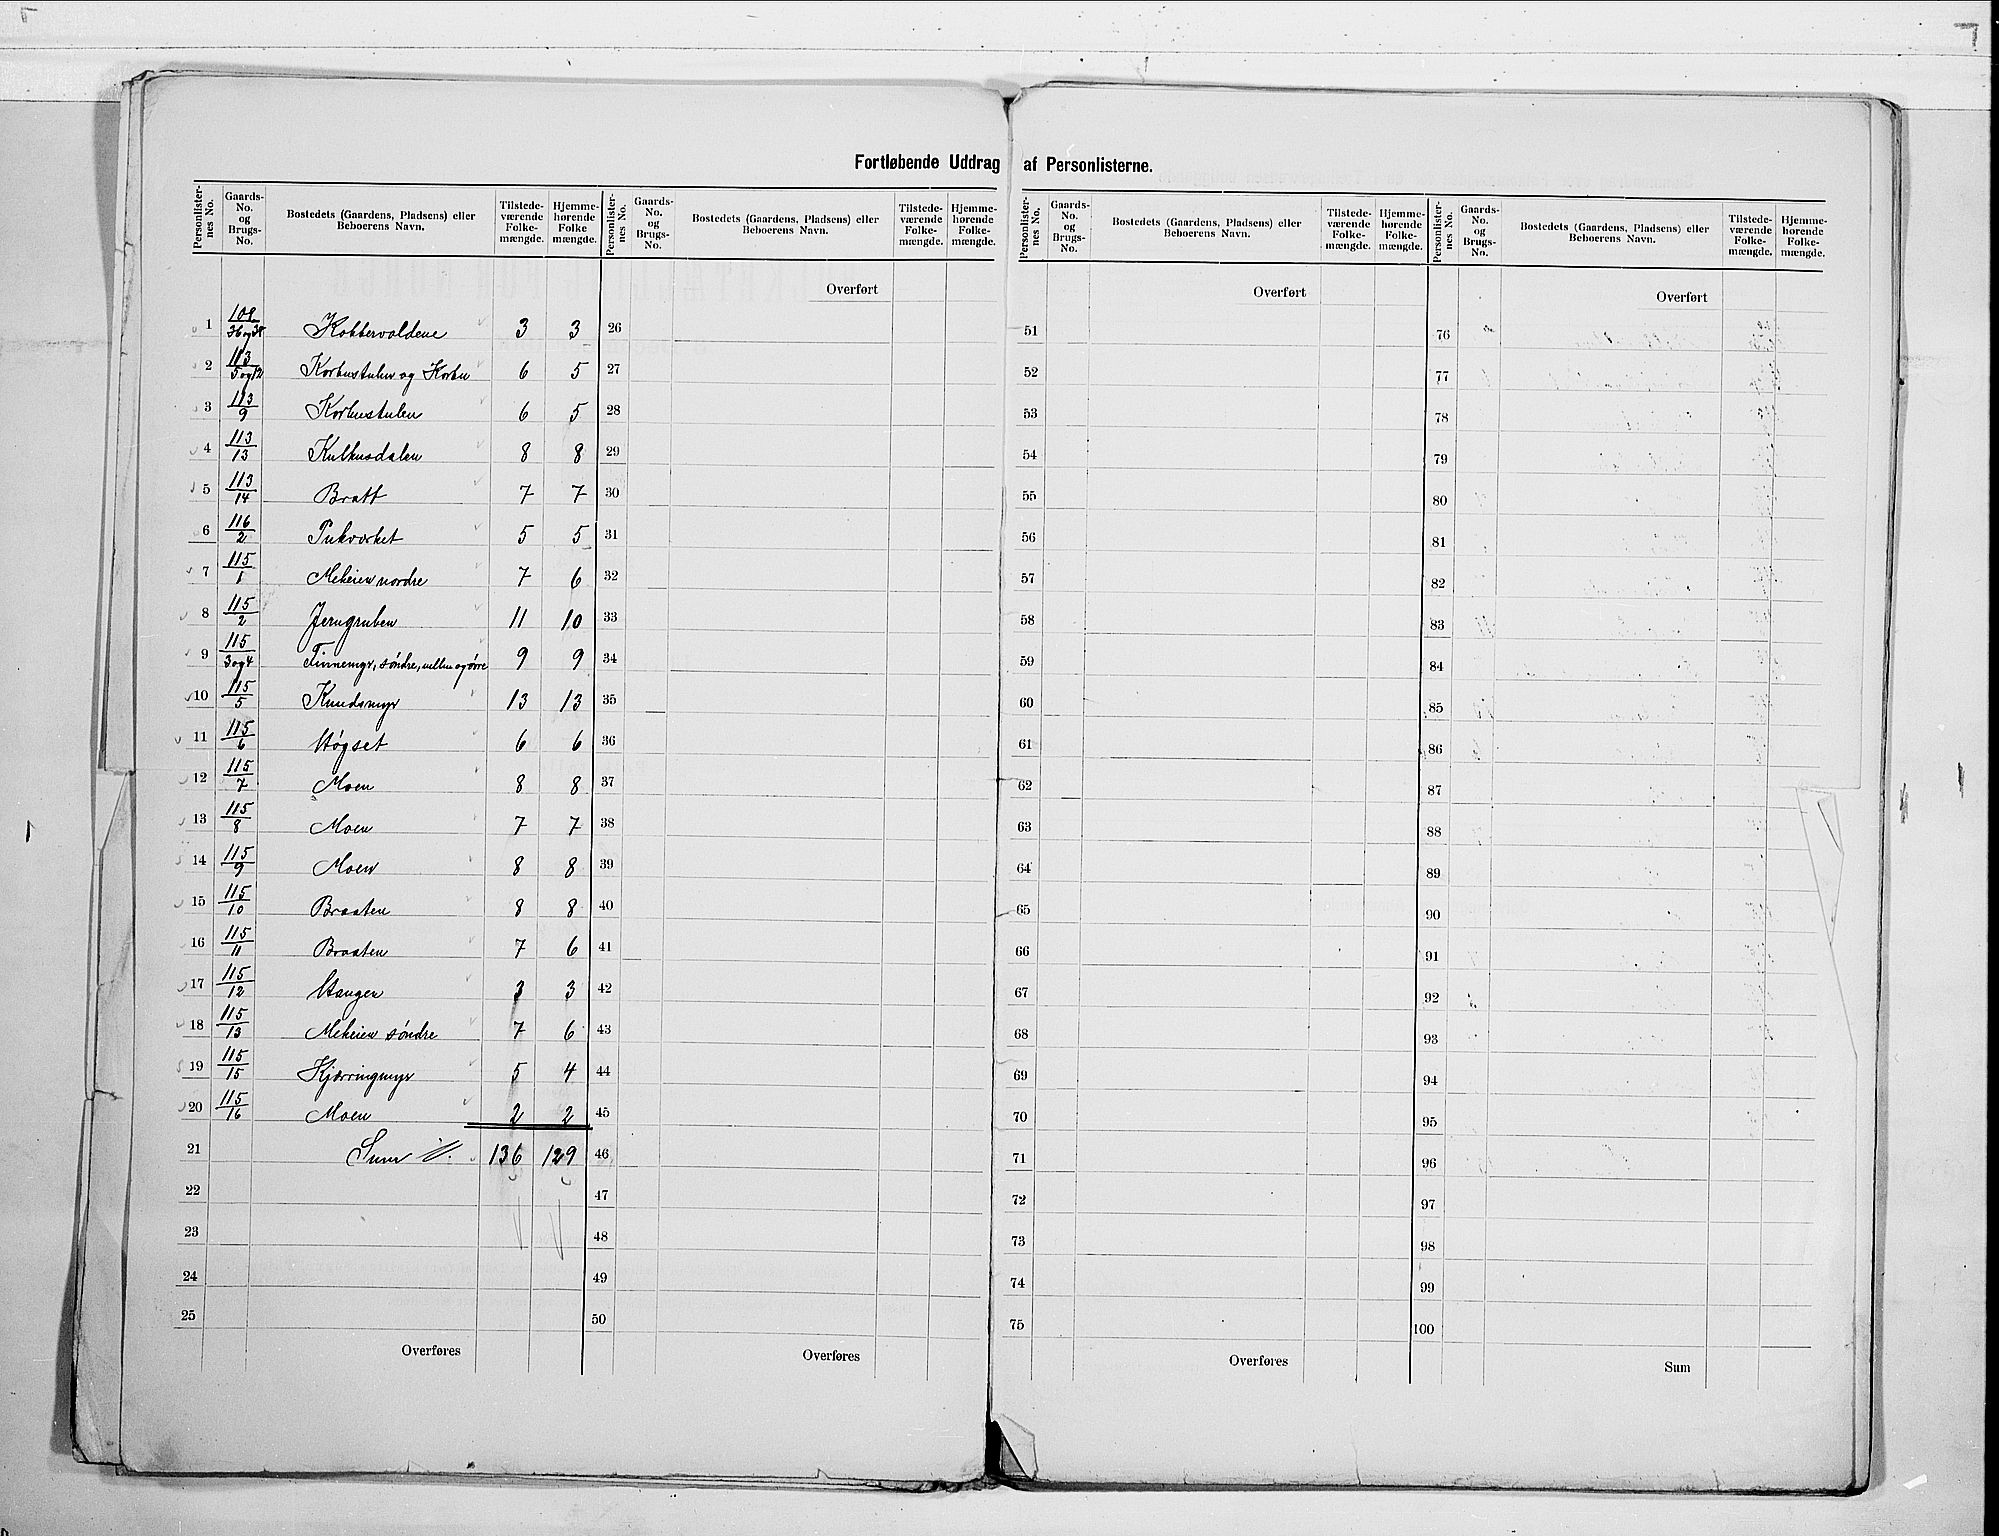 Fortløbende Uddrag af Personlisterne.
Personlister-nes No. Gaards-No. og Brugs-No. Bostedets (Gaardens, Pladsens) eller Beboerens Navn. Tilstede-værende Folke-mængde. Hjemme-hørende Folke mængde.
Personlister-nes No. Gaards-No. og Brugs-No. Bostedets (Gaardens, Pladsens) eller Beboerens Navn. Tilstede-værende Folke-mængde. Hjemme-hørende Folke-mængde.
Personlister-nes No. Gaards-No. og Brugs-No. Bostedets (Gaardens, Pladsens) eller Beboerens Navn. Tilstede-værende Folke-mængde. Hjemme-hørende Folke-mængde.
Personlister-nes No. Gaards-No. og Brugs-No. Bostedets (Gaardens, Pladsens) eller Beboerens Navn. Tilstede-værende Folke-mængde. Hjemme-hørende Folke-mængde.
Overført Overført Overført
1 108/36 og 38 Kobbervoldene 3 3 26 51 76
2 113/5 og 12 Korhustulen og Korhu 6 5 27 52 77
3 113/9 Korhustulen 6 5 28 53 78
4 113/13 Kulhusdalen 8 8 29 54 79
5 113/14 Bratt 7 7 30 55 80
6 116/2 Pukværket 5 5 31 56 81
7 115/1 Meheien nordre 7 6 32 57 82
8 115/2 Jerngruben 11 10 33 58 83
9 115/3 og 4 Finnemyr, söndre, mellem og övre 9 9 34 59 84
10 115/5 Knudsmyr 13 13 35 60 85
11 115/6 Høgset 6 6 36 61 86
12 115/7 Moen 8 8 37 62 87
13 115/8 Moen 7 7 38 63 88
14 115/9 Moen 8 8 39 64 89
15 115/10 Braaten 8 8 40 65 90
16 115/11 Braaten 7 6 41 66 91
17 115/12 Haugen 3 3 42 67 92
18 115/13 Meheien söndre 7 6 43 68 93
19 115/15 Kjærringmyr 5 4 44 69 94
20 115/16 Moen 2 2 45 70 95
21 Sum 136 129 46 71 96
22 47 72 97
23 48 73 98
24 49 74 99
25 50 75 100
Overføres Overføres Overføres Sum